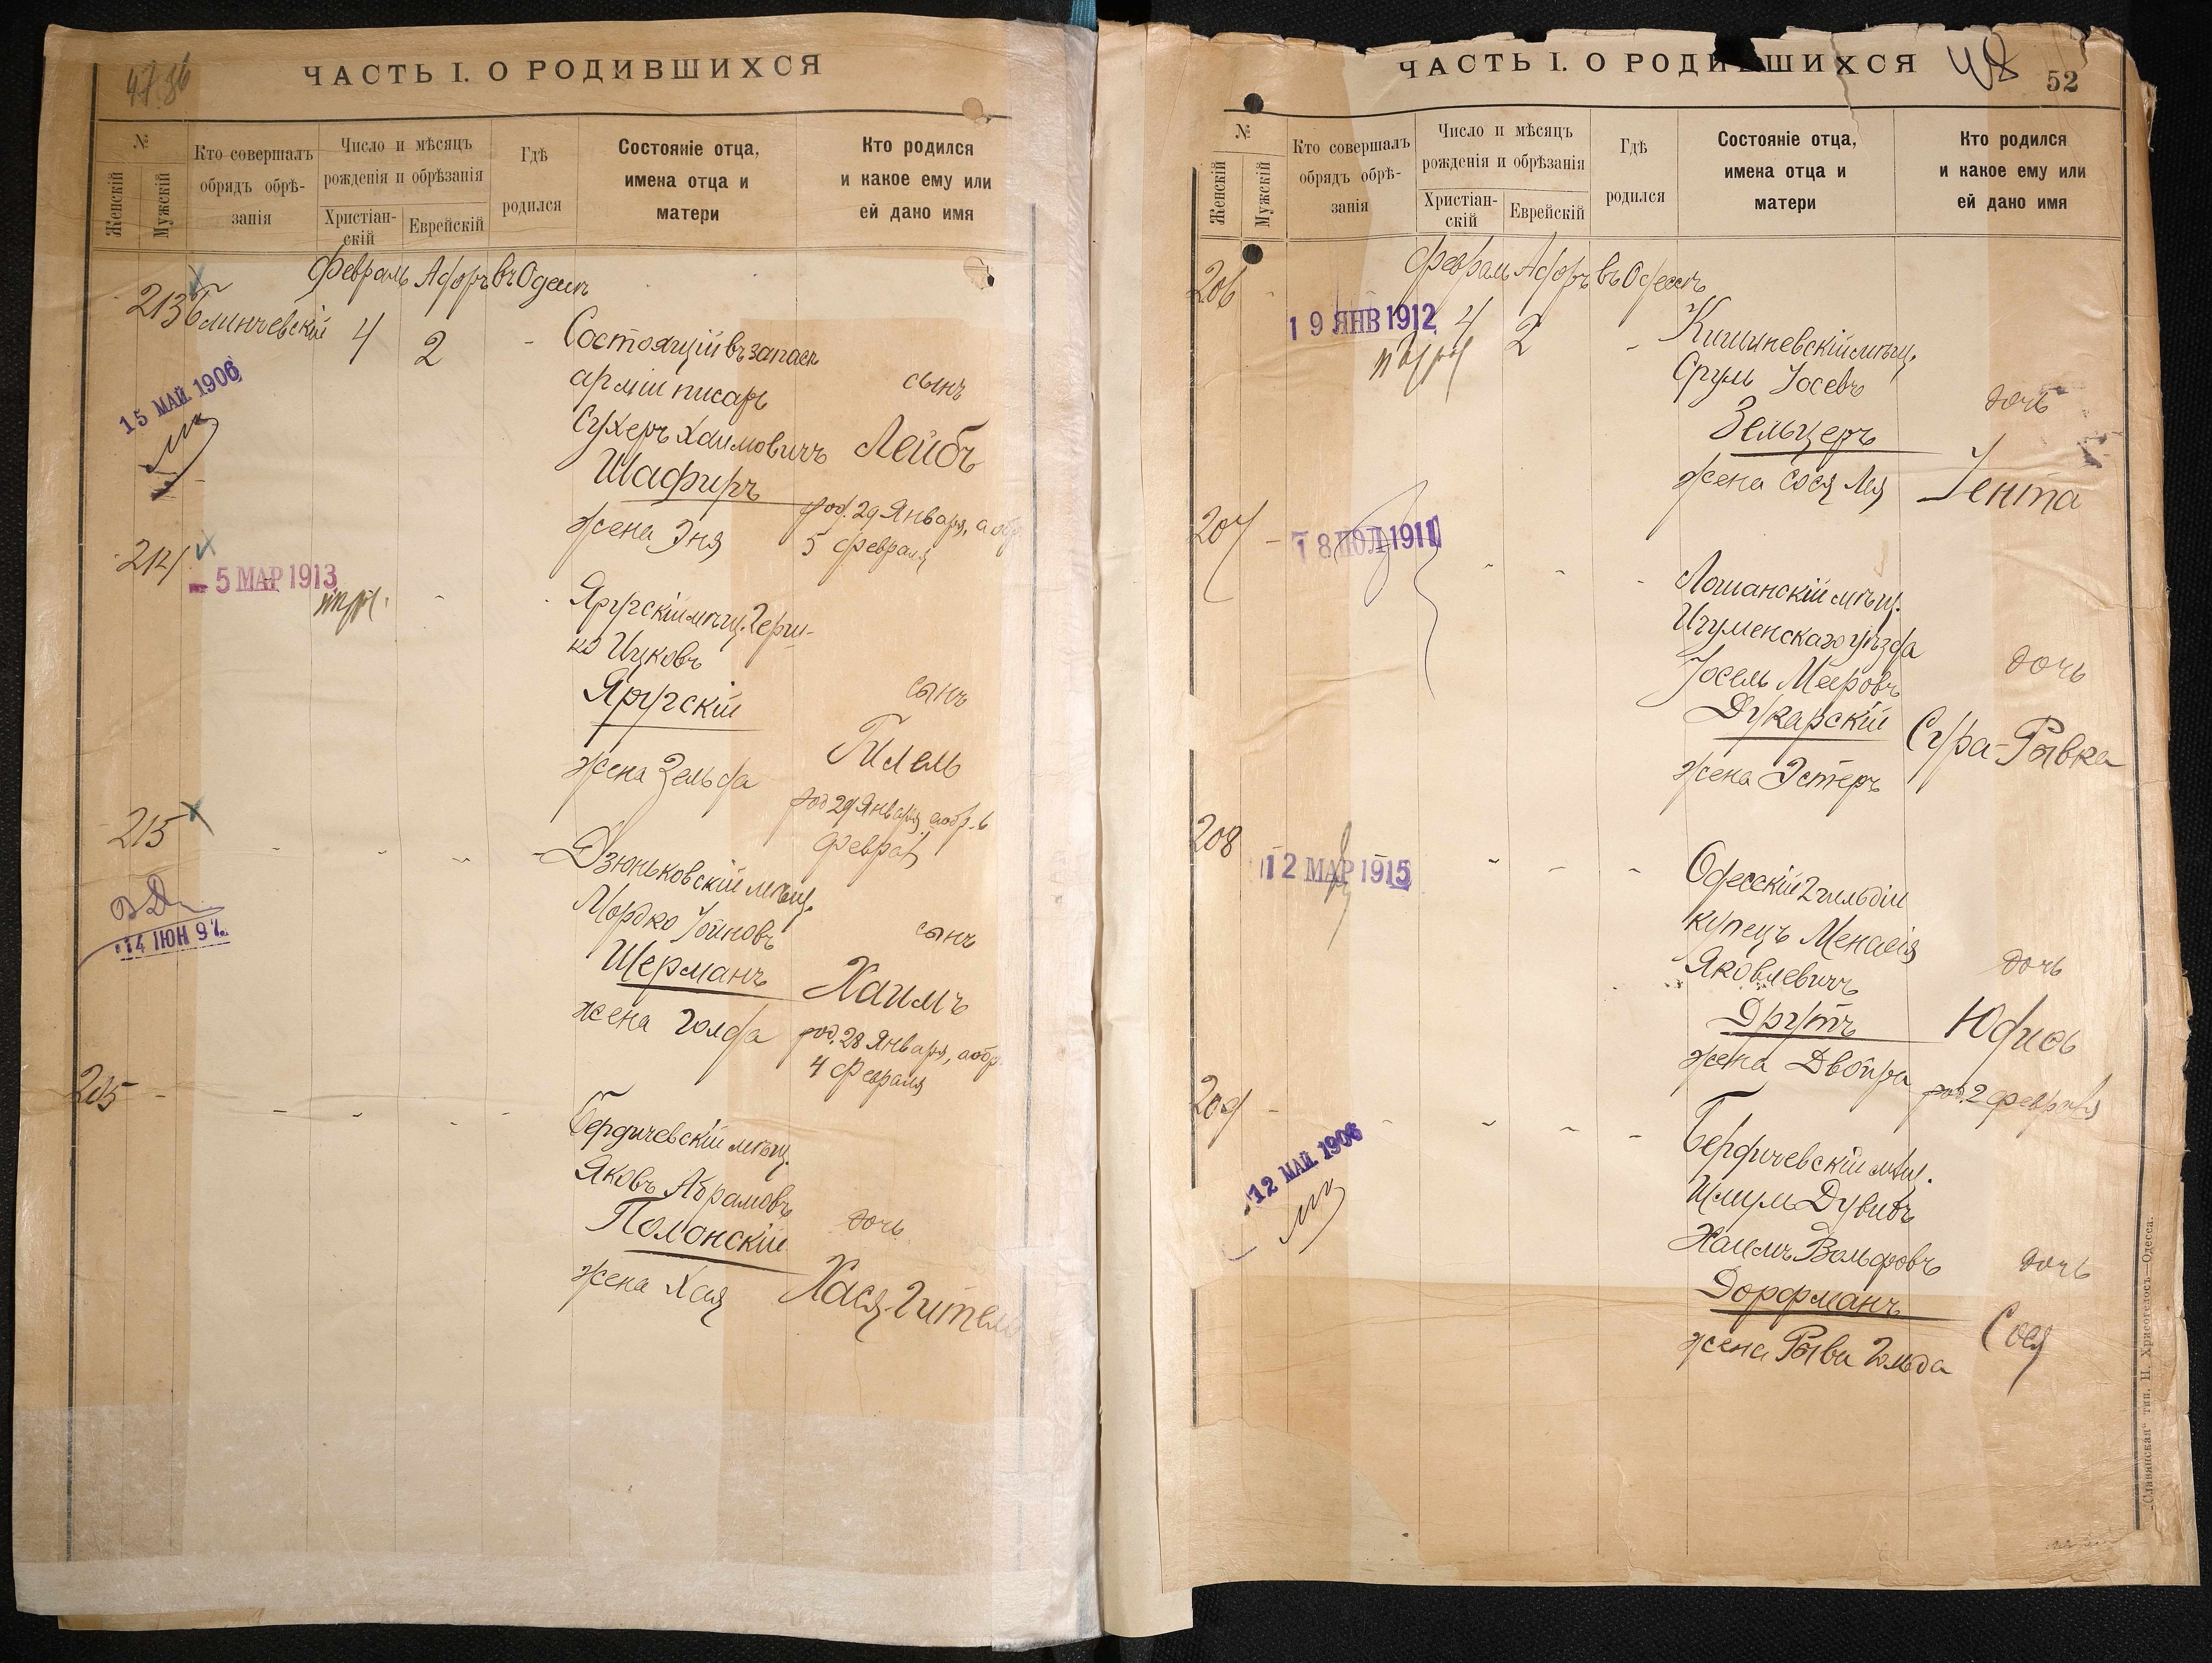 47.86
ЧАСТЬ I. О РОДИВШИХСЯ
№
Женскій
Мужскій
Кто совершалъ
обрядъ обрѣ-
занія
Число и мѣсяцъ
рожденія и обрѣзанія
Христіан-
скій
Еврейскій
Гдѣ
родился
Состояніе отца,
имена отца и
матери
Кто родился
и какое ему или
ей дано имя
Февраль Адоръ въ Одессѣ
213 4 2 -
15 МАЙ 1906
Состоящій въ запасѣ
арміи писарь
Сухеръ Хаимовичъ
Шафиръ
жена Эня
сынъ
Лейбъ
род. 29 Января, а обр.
5 Февраля
214
- 5 МАР 1913
Яругскій мѣщ. Герш-
ко Ицковъ
Яругскій
жена Зельда
сынъ
Гилель
род 29 Января, а обр. 6
Феврал
215
14 ІЮН 97.
Дзюньковскій мѣщ.
Мордко Іойновъ
Шерманъ
жена Голда
сынъ
Хаимъ
род. 28 Января, а обр.
4 Февраля
205
Бердичевскій мѣщ.
Яковъ Абрамовъ
Полонскій
жена Хая
дочь
Хася-Гитель
ЧАСТЬ I. О РОДИВШИХСЯ
48
52
№
Женскій
Мужскій
Кто совершалъ
обрядъ обрѣ-
занія
Число и мѣсяцъ
рожденія и обрѣзанія
Христіан-
скій
Еврейскій
Гдѣ
родился
Состояніе отца,
имена отца и
матери
Кто родился
и какое ему или
ей дано имя
Февраль Адоръ въ Одессѣ
206 4 2 -
19 ЯНВ 1912
Кишиневскій мѣщ.
Сруль Іосевъ
Зельцеръ
жена Сося Лея
дочь
Іента
207
18 ІЮЛ 1911
Лошанскій мѣщ.
Игуменскаго уѣзда
Іосель Мееровъ
Дукарскій
жена Эстеръ
дочь
Сура-Рывка
208
12 МАР 1915
Одесскій 2 гильдіи
купецъ Менасія
Яковлевичъ
Друтъ
жена Двойра
дочь
Юдись
род. 2 Февраля
209
12 МАЙ 1906
Бердичевскій мѣщ.
Шлумъ Дувидъ
Хаимъ Вольфовъ
Дорфманъ
жена Рыва Гольда
дочь
Сося
„Славянская" тип. Н. Хрисогелосъ—Одесса.